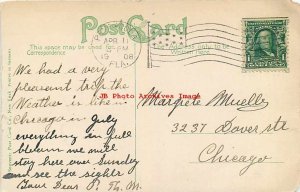 Post Card
This space may be used for
Correspondence
1908
We had a very
pleasant trip the
Weather is like in
Chicago in July
everything in full
bloom we will
stay here one Sunday
and see the sights
Your Dear
Margrete Mueller
3237 Dover str
Chicago